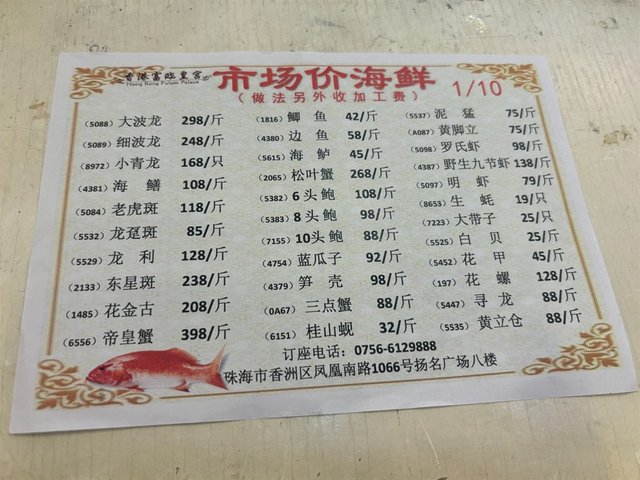 香港富临皇宫
Hong Kong Fulum Palace
市场价海鲜
1/10
（做法另外收加工费）
（5088）大波龙 298/斤
（5089）细波龙 248/斤
（8972）小青龙 168/只
（4381）海 鳝 108/斤
（5084）老虎斑 118/斤
（5532）龙趸斑 85/斤
（5529）龙 利 128/斤
（2133）东星斑 238/斤
（1485）花金古 208/斤
（6556）帝皇蟹 398/斤
（1816）鲫 鱼 42/斤
（4380）边 鱼 58/斤
（5615）海 鲈 45/斤
（2065）松叶蟹 268/斤
（5382）6 头鲍 108/斤
（5383）8 头鲍 98/斤
（7155）10头鲍 88/斤
（4754）蓝瓜子 92/斤
（4379）笋 壳 98/斤
（0A67）三点蟹 88/斤
（6151）桂山蚬 32/斤
（5537）泥 猛 75/斤
（A087）黄脚立 75/斤
（5098）罗氏虾 98/斤
（4387）野生九节虾 138/斤
（5097）明 虾 79/斤
（8653）生 蚝 19/只
（7223）大带子 25/只
（5525）白 贝 25/斤
（5452）花 甲 45/斤
（197）花 螺 128/斤
（5447）寻 龙 88/斤
（5535）黄立仓 88/斤
订座电话：0756-6129888
珠海市香洲区凤凰南路1066号扬名广场八楼